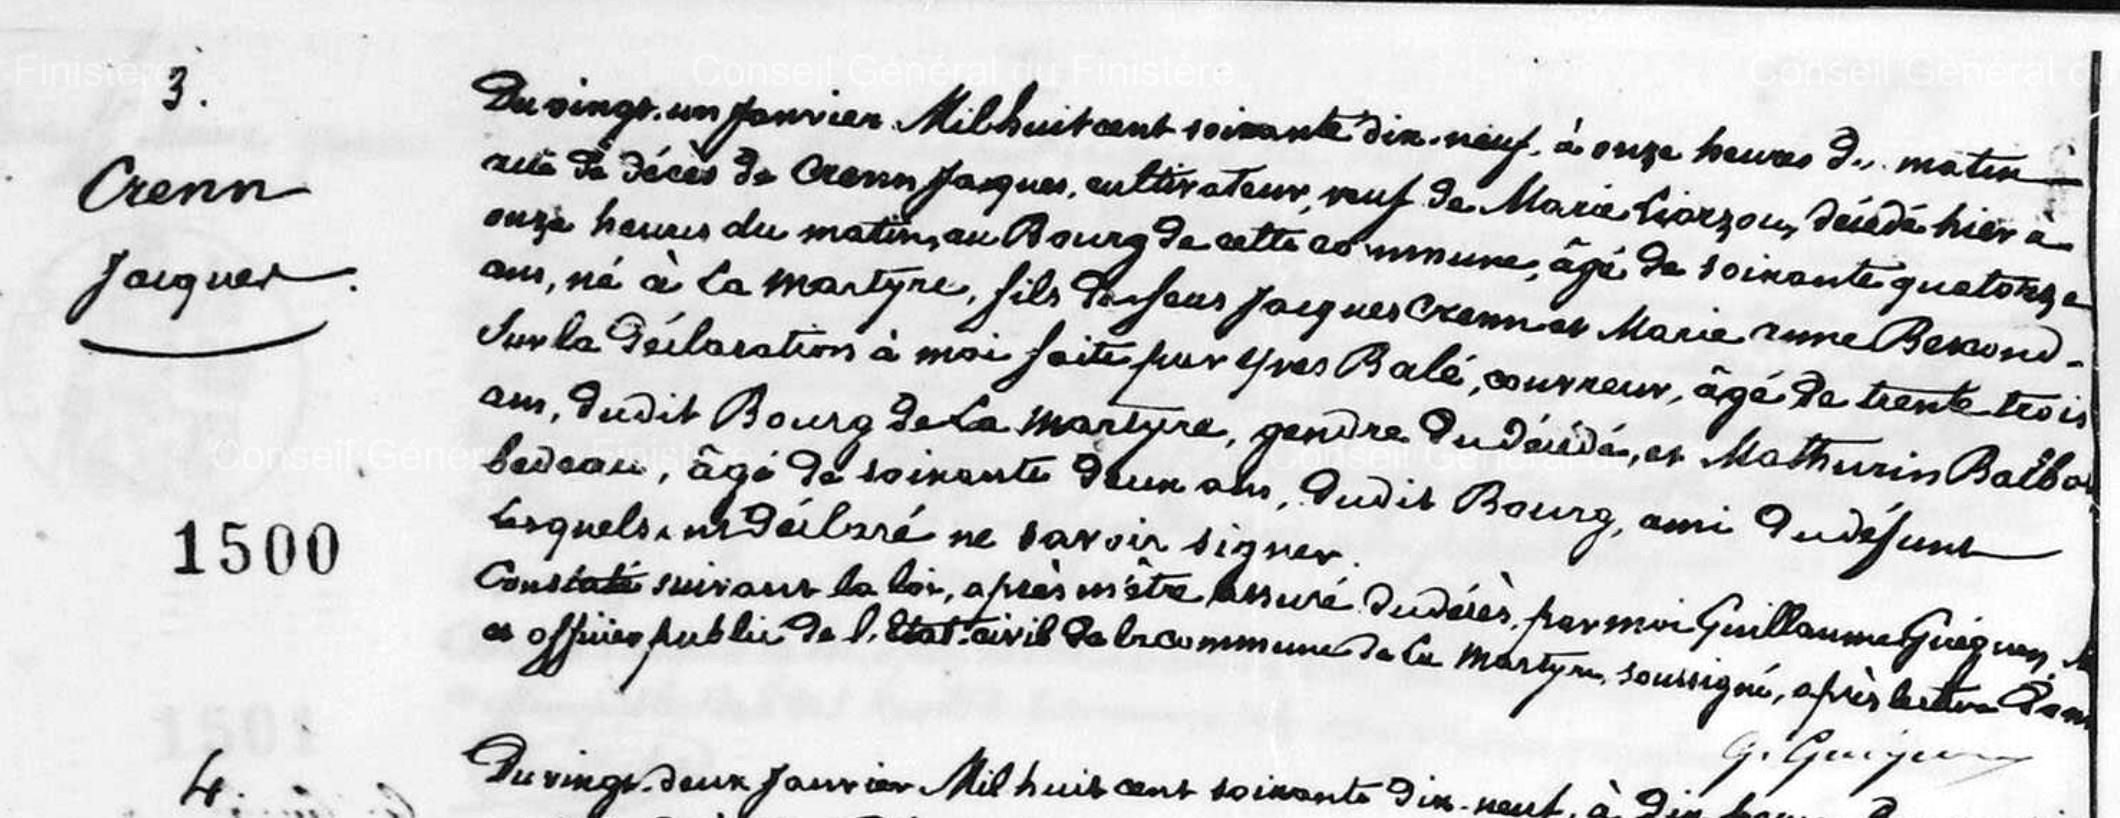 Finistère
Conseil Général du Finistère
Conseil Général du
3.
Crenn
Jacques.
1500
Du vingt-un Janvier Mil huit cent soixante dix-neuf, à onze heures du matin
acte de décès de Crenn Jacques, cultivateur, veuf de Marie Liorzou, décédé hier à
onze heures du matin, au Bourg de cette commune, âgé de soixante quatorze
ans, né à La Martyre, fils de feus Jacques Crenn et Marie Anne
Sur la déclaration à moi faite par Yves Balé, couvreur, âgé de trente trois
ans, dudit Bourg de La Martyre, gendre du décédé, et Mathurin
Conseil Général du Finistère
Conseil Général du
bedeau, âgé de soixante deux ans, dudit Bourg, ami du défunt
Lesquels ont déclaré ne savoir signer.
Constaté suivant la loi, après m'être assuré du décès, par moi Guillaume Guéguen,
et officier public de l'Etat-civil de la commune de La Martyre, soussigné, après lecture
G. Guéguen
1501
4.
Du vingt-deux Janvier Mil huit cent soixante dix-neuf, à dix heures